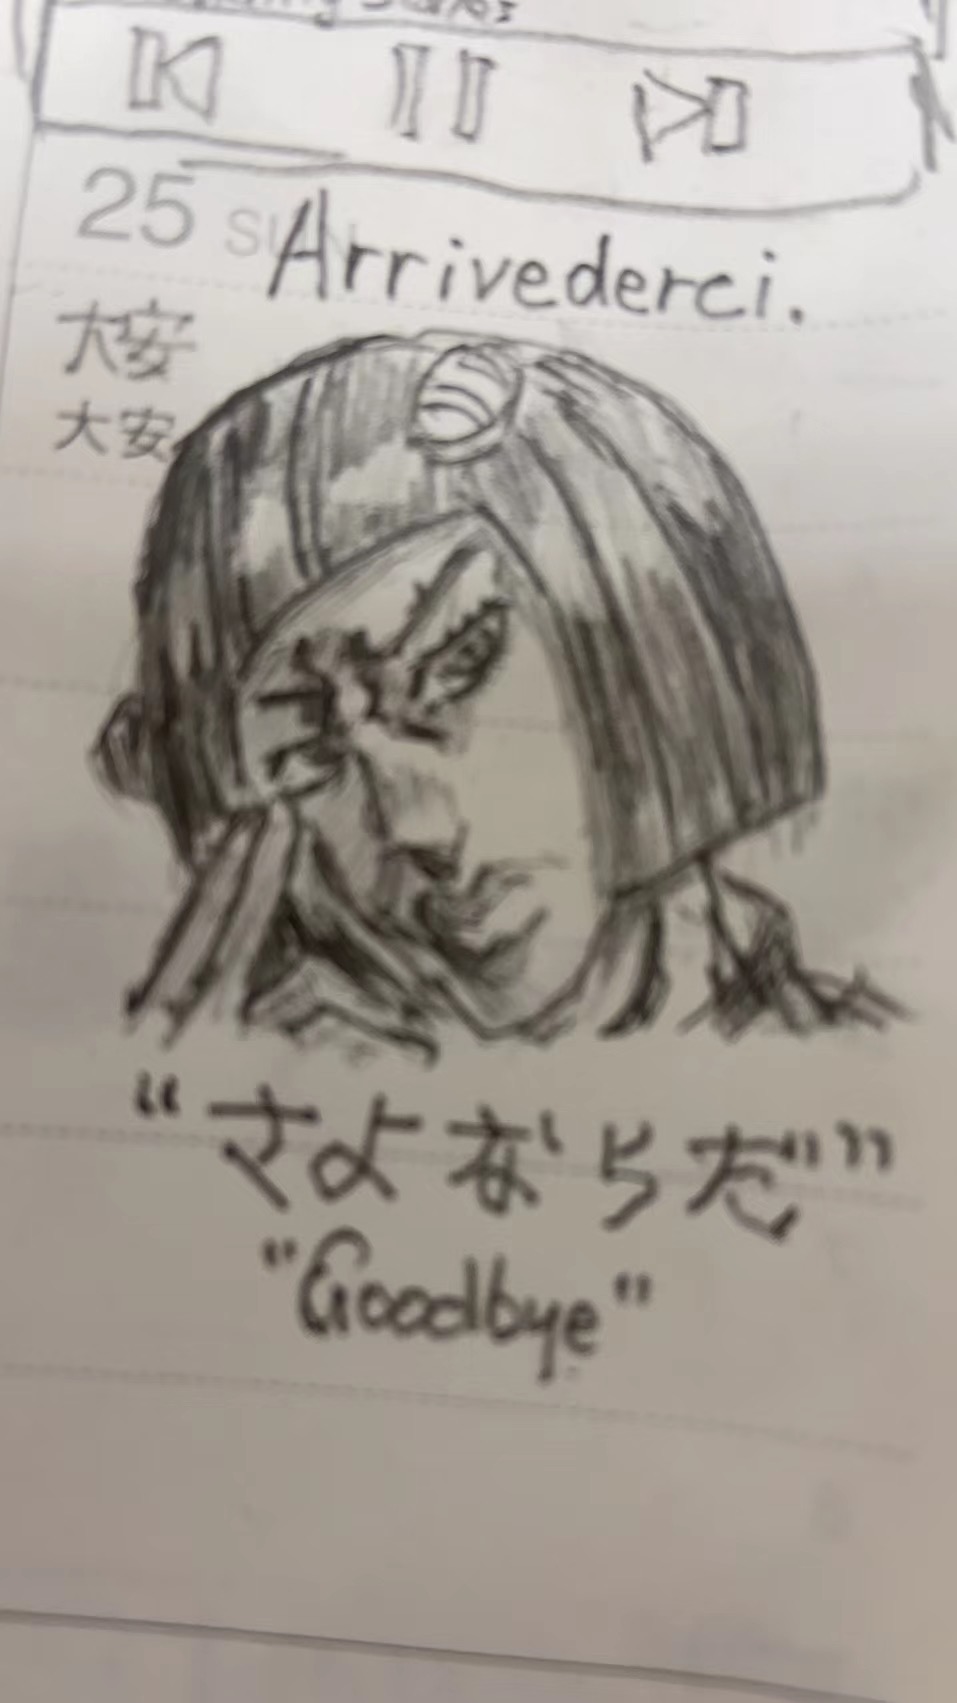 25 SUN
Arrivederci.
大安
大安
“さよならだ”
"Goodbye"